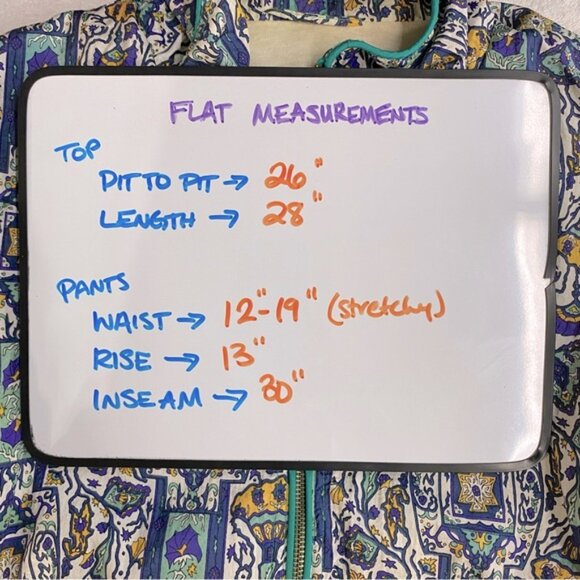 FLAT MEASUREMENTS
TOP
PIT TO PIT → 26"
LENGTH → 28"
PANTS
WAIST → 12"-19" (stretchy)
RISE → 13"
INSEAM → 30"